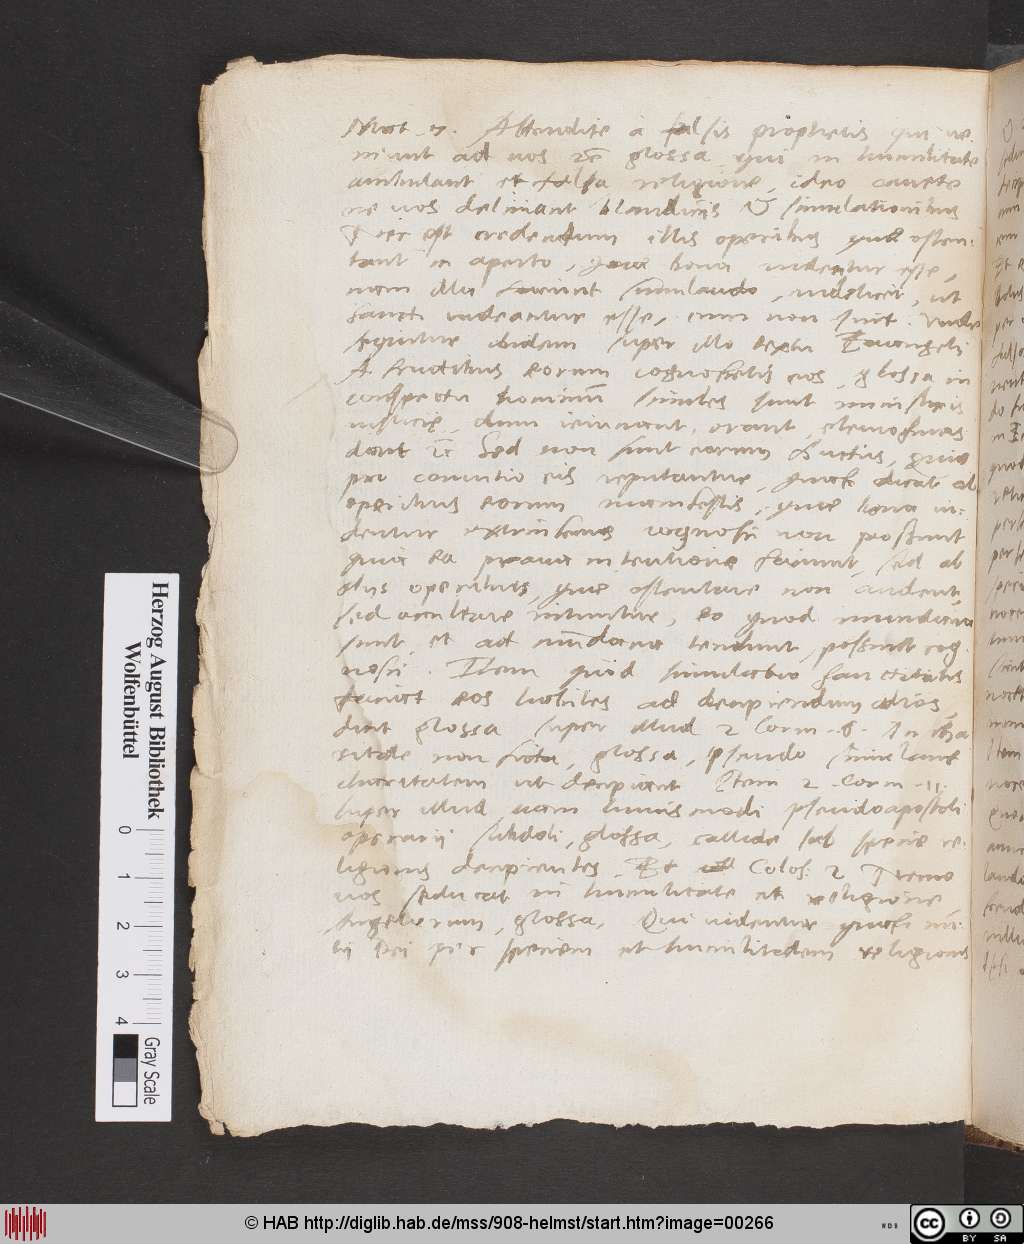 Mat. 7. Attendite a falsis prophetis qui ve
niunt ad vos etc glossa qui in humilitate
ambulant et falsa religione, ideo cavete
ne vos deliniant blandiciis & simulationibus
Nec est credendum illis operibus que osten-
tant in aperto, que bona videntur esse,
nam illa faciunt simulando, videlicet, ut
sancti videantur esse, cum non sint. Unde
sequitur ibidem super illo textu Evangelii
A fructibus eorum cognoscetis eos, glossa in
conspectu hominum similes sunt ministris
iusticię, dum ieiunant, orant, elemosinas
dant etc Sed non sunt eorum fructus, quia
pro convitio eis reputantur, quasi dicat ab
operibus eorum manifestis, que bona vi-
dentur extrinsecus cognosci non possunt
quia ea prava intentione faciunt, sed ab
illis operibus, que ostentare non audent,
sed occultare nituntur, eo quod mundana
sunt, et ad mundana tendunt, possunt cog
nosci. Item quod simulatio sanctitatis
faciat eos habiles ad decipiendum alios,
dicit glossa super illud 2 Corin. 6. In cha
ritate non ficta, glossa, pseudo simulant
charitatem ut decipiant Item 2 Corin. 11.
super illud nam huiusmodi pseudoapostoli
operarii subdoli, glossa, callide sub specie re-
ligionis decipientes. Et Colos: 2 Nemo
vos seducat in humilitate et religione
Angelorum, glossa, Qui videntur quasi nun-
tii Dei per speciem et humilitatem religionis
Herzog August Bibliothek
Wolfenbüttel
0 1 2 3 4
Gray Scale
© HAB http://diglib.hab.de/mss/908-helmst/start.htm?image=00266
WDB
cc BY SA